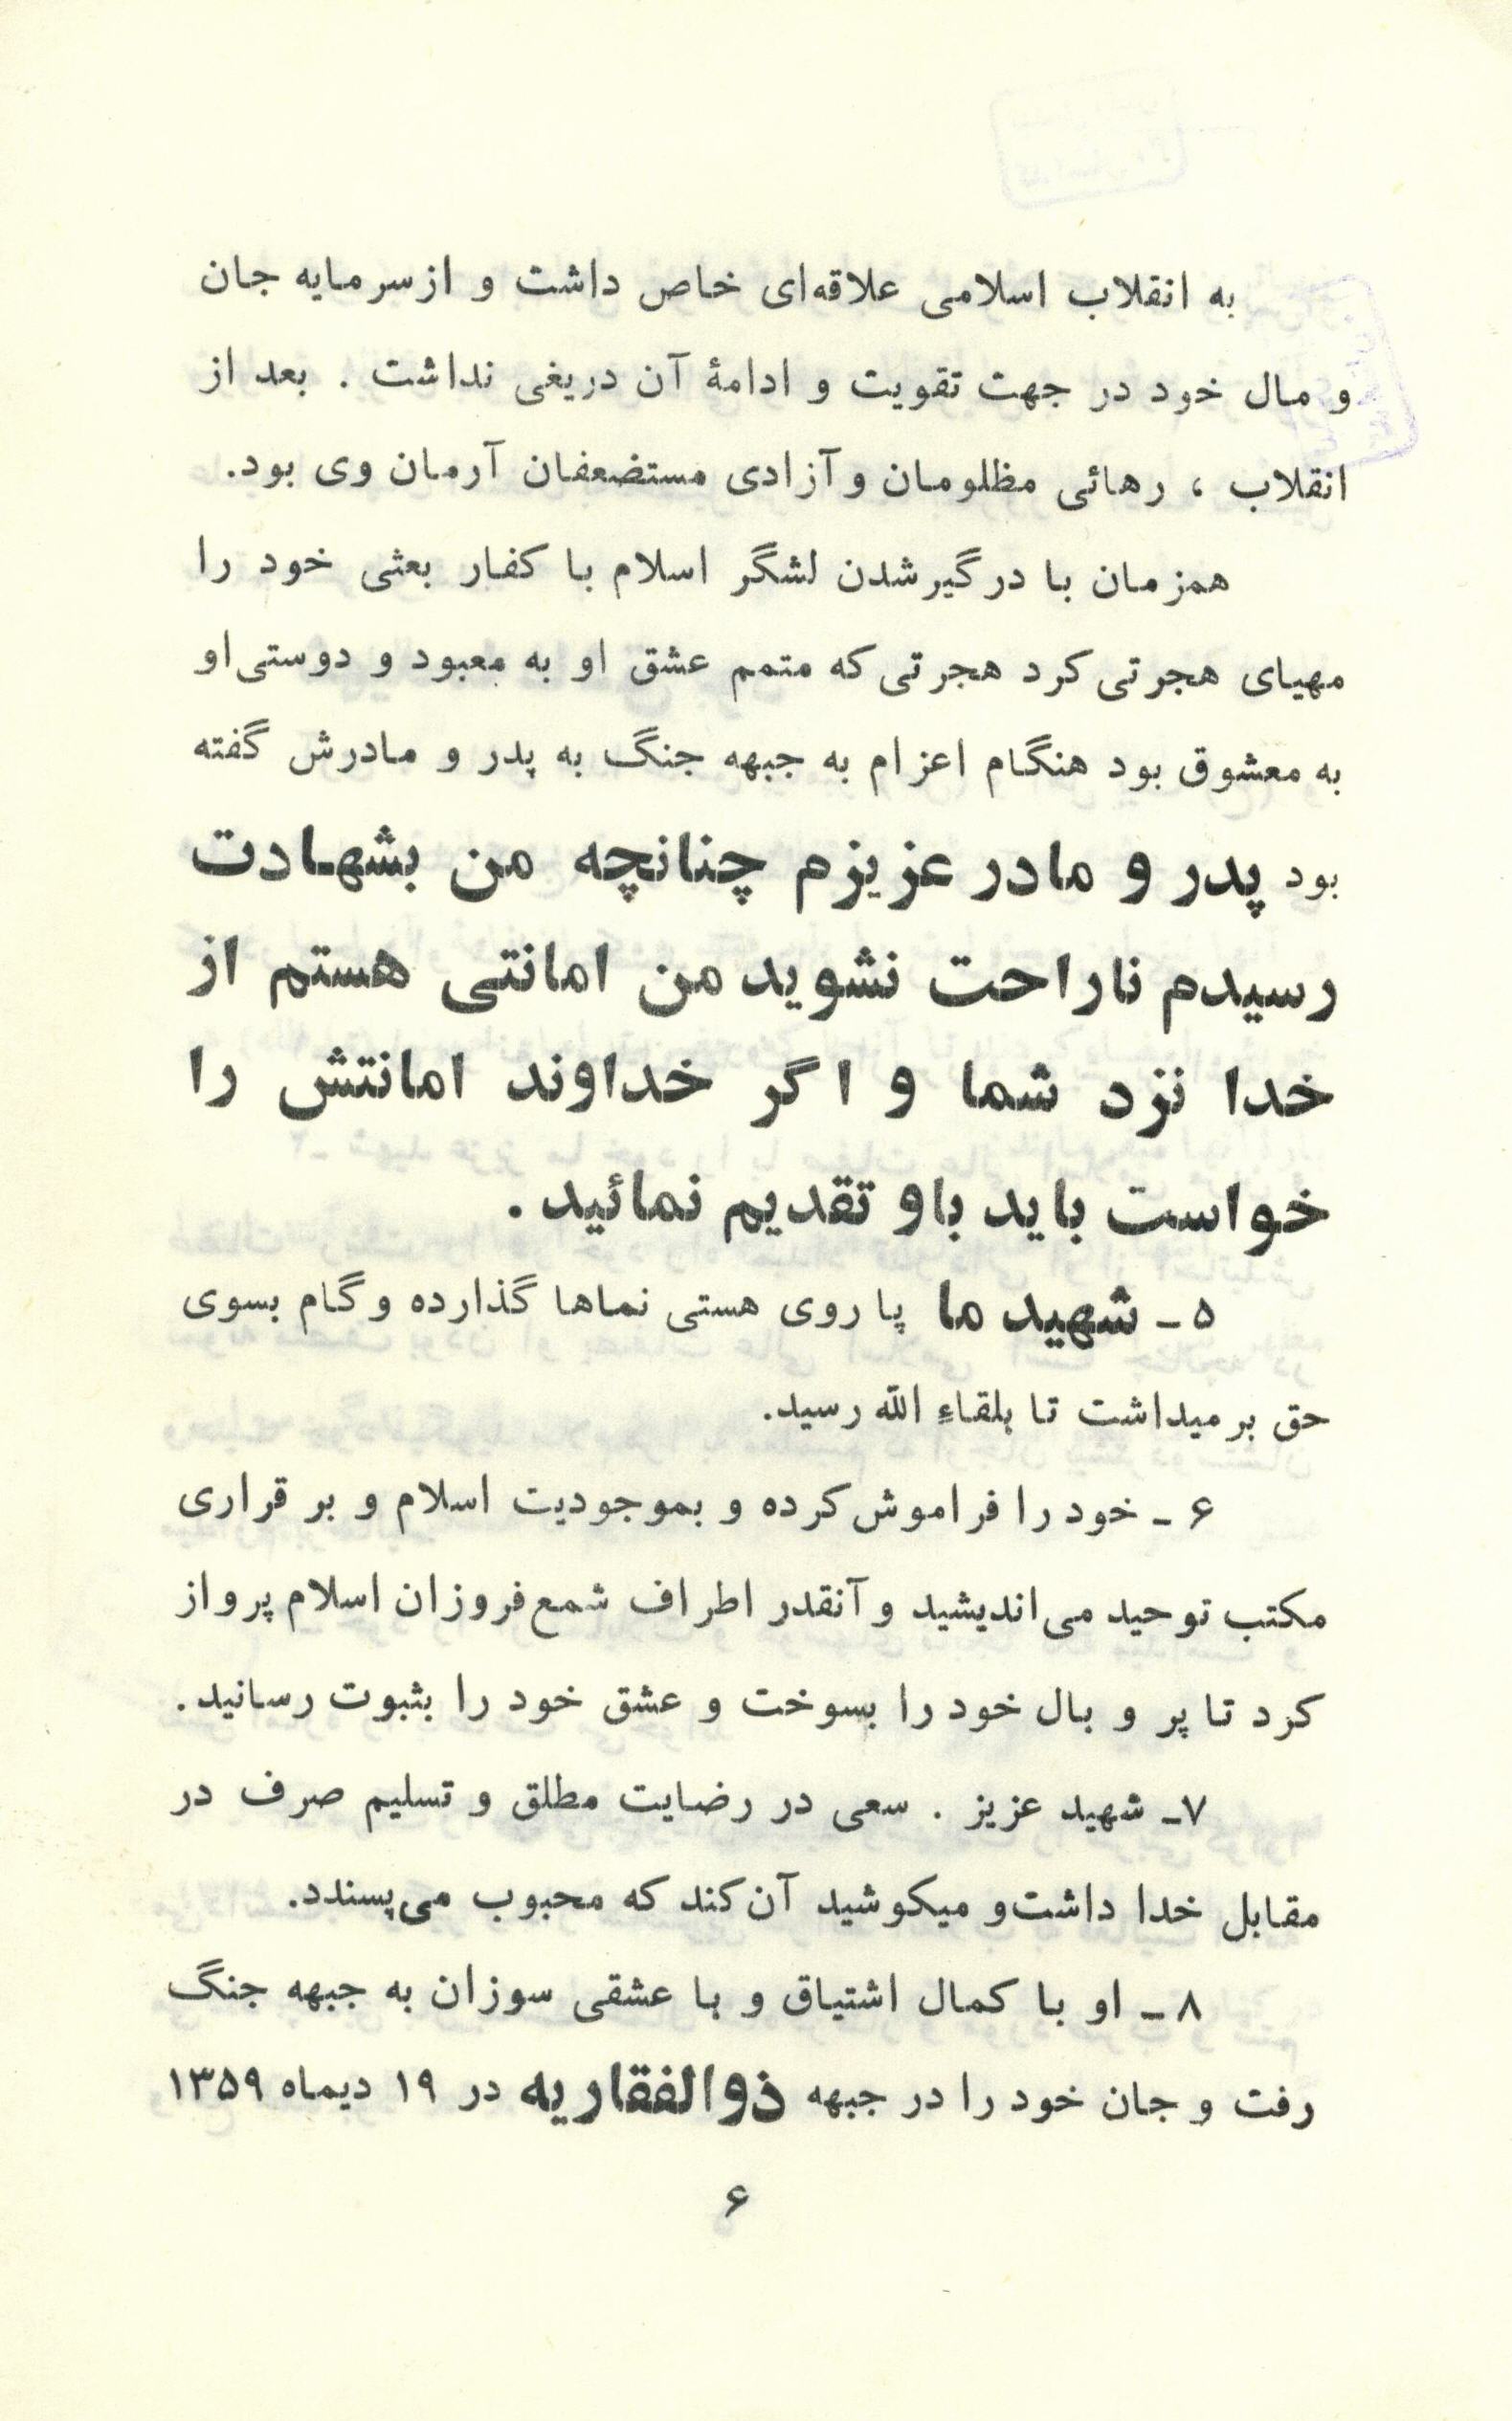 به انقلاب اسلامی علاقه‌ای خاص داشت و از سرمایه جان
و مال خود در جهت تقویت و ادامهٔ آن دریغی نداشت . بعد از
انقلاب ، رهائی مظلومان و آزادی مستضعفان آرمان وی بود.
همزمان با درگیر شدن لشگر اسلام با کفار بعثی خود را
مهیای هجرتی کرد هجرتی که متمم عشق او به معبود و دوستی او
به معشوق بود هنگام اعزام به جبهه جنگ به پدر و مادرش گفته
بود پدر و مادر عزیزم چنانچه من بشهادت
رسیدم ناراحت نشوید من امانتی هستم از
خدا نزد شما و اگر خداوند امانتش را
خواست باید باو تقدیم نمائید .
۵ ـ شهید ما پا روی هستی نماها گذارده و گام بسوی
حق بر میداشت تا بلقاءِ الله رسید.
۶ ـ خود را فراموش کرده و بموجودیت اسلام و بر قراری
مکتب توحید می‌اندیشید و آنقدر اطراف شمع فروزان اسلام پرواز
کرد تا پر و بال خود را بسوخت و عشق خود را بثبوت رسانید .
۷ـ شهید عزیز . سعی در رضایت مطلق و تسلیم صرف در
مقابل خدا داشت و میکوشید آن کند که محبوب می‌پسندد.
۸ ـ او با کمال اشتیاق و با عشقی سوزان به جبهه جنگ
رفت و جان خود را در جبهه ذوالفقاریه در ۱۹ دیماه ۱۳۵۹
۶